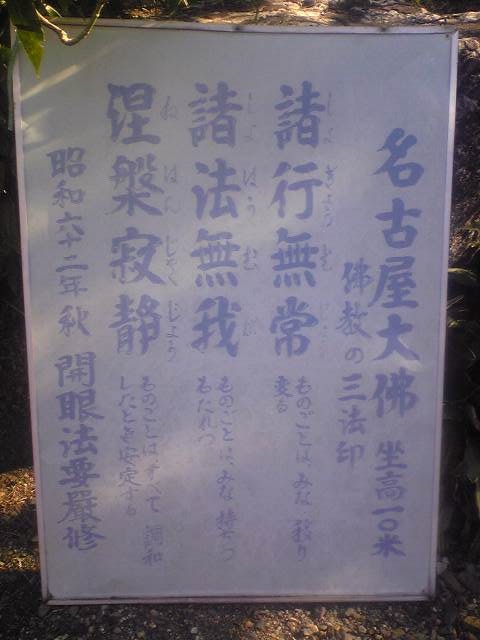 名古屋大佛 坐高一〇米
佛教の三法印
諸行無常
しよ ぎよう む じよう
ものごとは、みな、移り
変る
諸法無我
しよ はう む が
ものごとは、みな 持ちつ
もたれつ
涅槃寂静
ね はん じやく じよう
ものごとはすべて 調和
したとき安定する
昭和六十二年秋 開眼法要嚴修